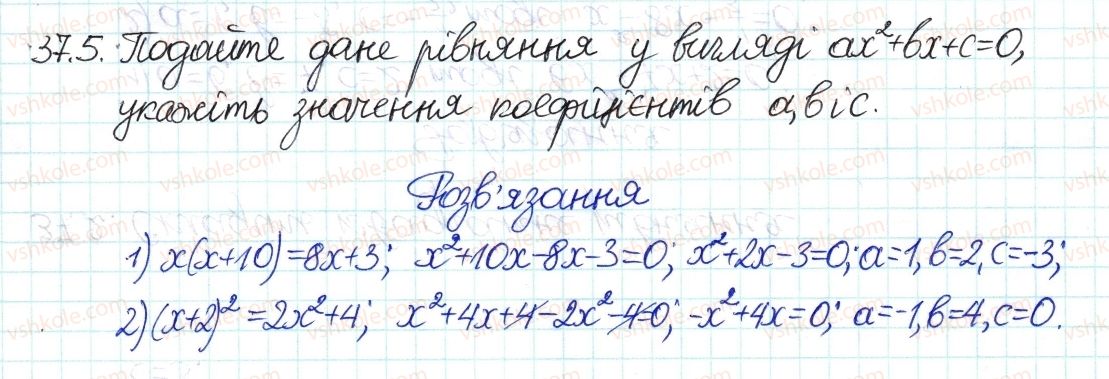 37.5. Подайте дане рівняння у вигляді ax²+bx+c=0,
укажіть значення коефіцієнтів a, b і c.
Розв'язання
1) x(x+10)=8x+3; x²+10x-8x-3=0; x²+2x-3=0; a=1, b=2, c=-3;
2) (x+2)²=2x²+4; x²+4x+4-2x²-4=0; -x²+4x=0; a=-1, b=4, c=0.